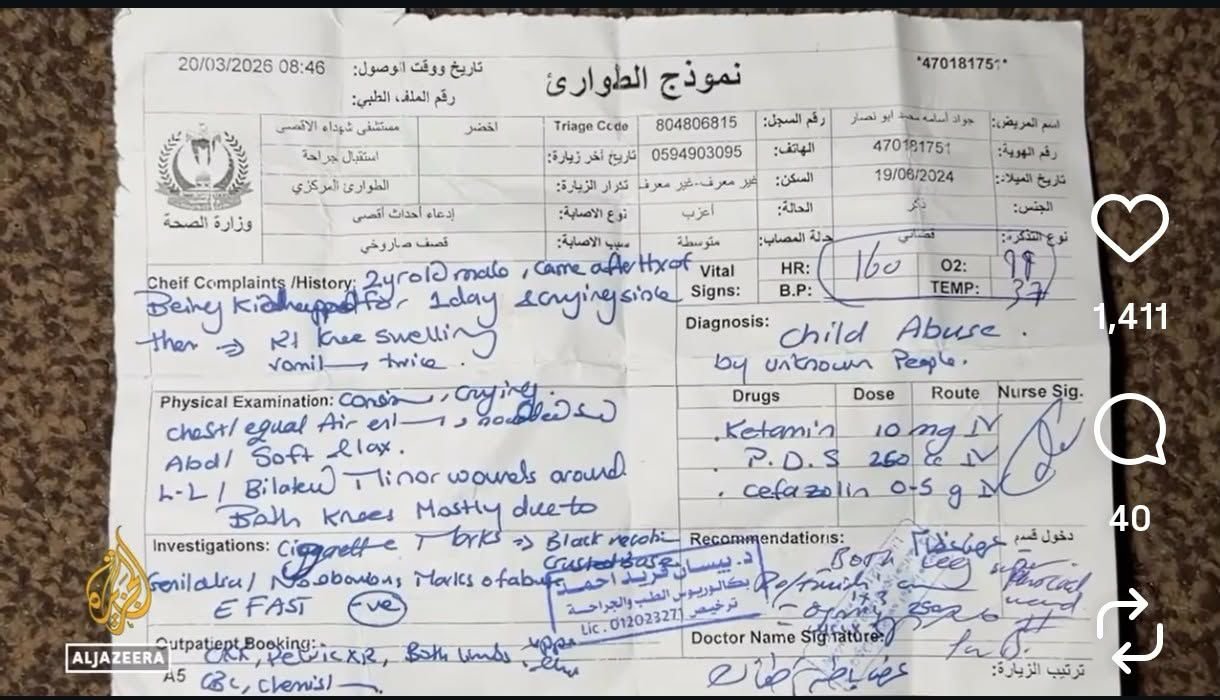 نموذج الطوارئ
تاريخ ووقت الوصول: 20/03/2026 08:46
رقم الملف الطبي:
*470181751*
اسم المريض: جواد أسامه محمد ابو نصار
رقم السجل: 804806815
Triage Code اخضر
مستشفى شهداء الاقصى
رقم الهوية: 470181751
الهاتف: 0594903095
تاريخ آخر زيارة:
استقبال جراحة
تاريخ الميلاد: 19/06/2024
السكن: غير معرف-غير معرف
تكرار الزيارة:
الطوارئ المركزي
الجنس: ذكر
الحالة: أعزب
نوع الاصابة: إدعاء أحداث أقصى
نوع التذكرة: قضائي
حالة المصاب: متوسطة
سبب الاصابة: قصف صاروخي
وزارة الصحة
Cheif Complaints /History: 2 yr old male, came after Hx of
Being Kidnapped for 1 day & crying since
then → Rt Knee swelling
vomit twice.
Vital Signs:
HR: 160 O2: 99
B.P: TEMP: 37
Diagnosis: Child Abuse.
by unknown People.
Physical Examination: crying.
chest/ equal Air
Abd/ Soft & lax.
L-L / Minor wounds around
Both Knees Mostly due to
Drugs Dose Route Nurse Sig.
Ketamin 10 mg IV
P.D.S 250 cc IV
cefazolin 0.5 g IV
Investigations: Ciggarette Marks → Black
Crusted base
Genitalia/ No obvious Marks of abuse
E FAST -ve
Recommendations:
دخول قسم
Both Leg
د. بيسان فريد احمد
بكالوريوس الطب والجراحة
ترخيص
Lic. 01202327
Outpatient Booking:
CXR, Pelvic XR, Both limbs
CBC, Chemist
A5
Doctor Name Signature:
ترتيب الزيارة:
الجزيرة
ALJAZEERA
1,411
40